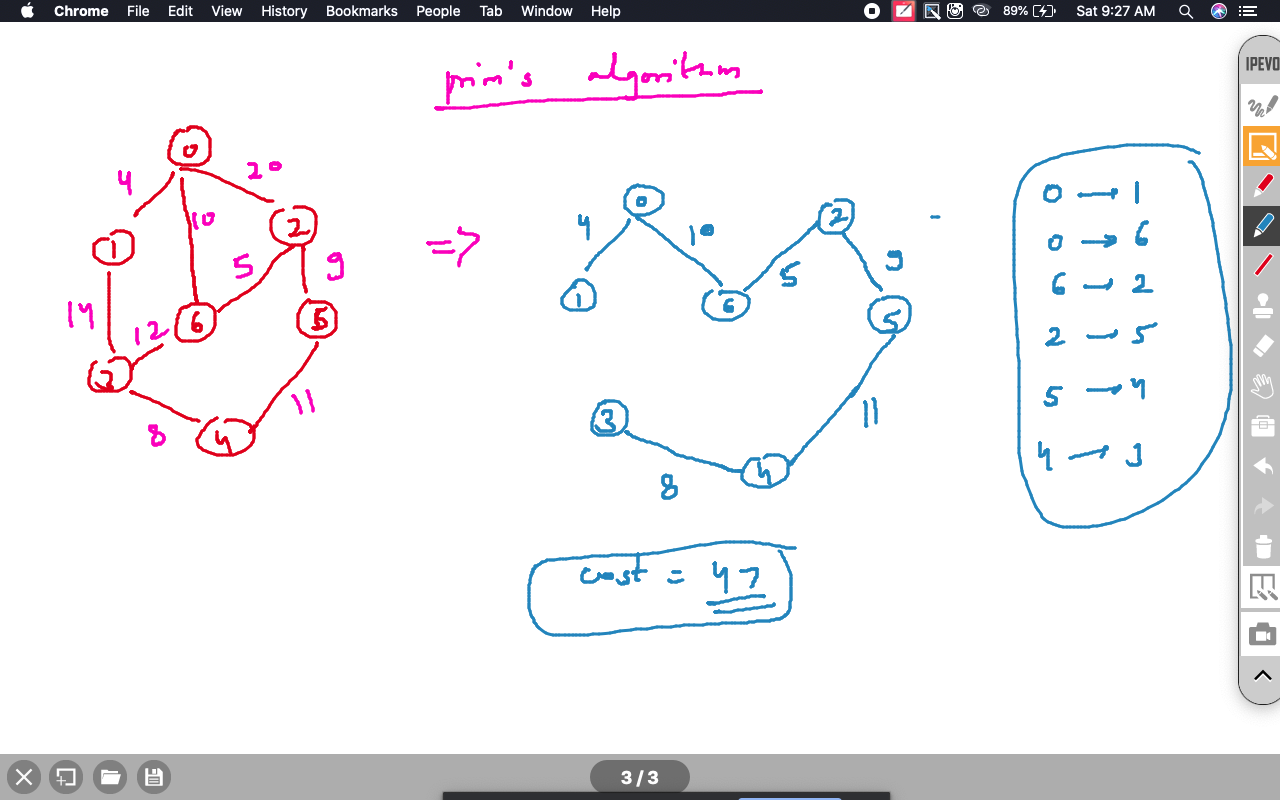 Chrome File Edit View History Bookmarks People Tab Window Help 89% Sat 9:27 AM
IPEVO
prim's algorithm
0
4 20
10
1 2
5 9
=>
14 12 6 5
3
8 4 11
0
4 10
1 6 2
5 9
5
3 11
8 4
0 → 1
0 → 6
6 → 2
2 → 5
5 → 4
4 → 3
cost = 47
3 / 3